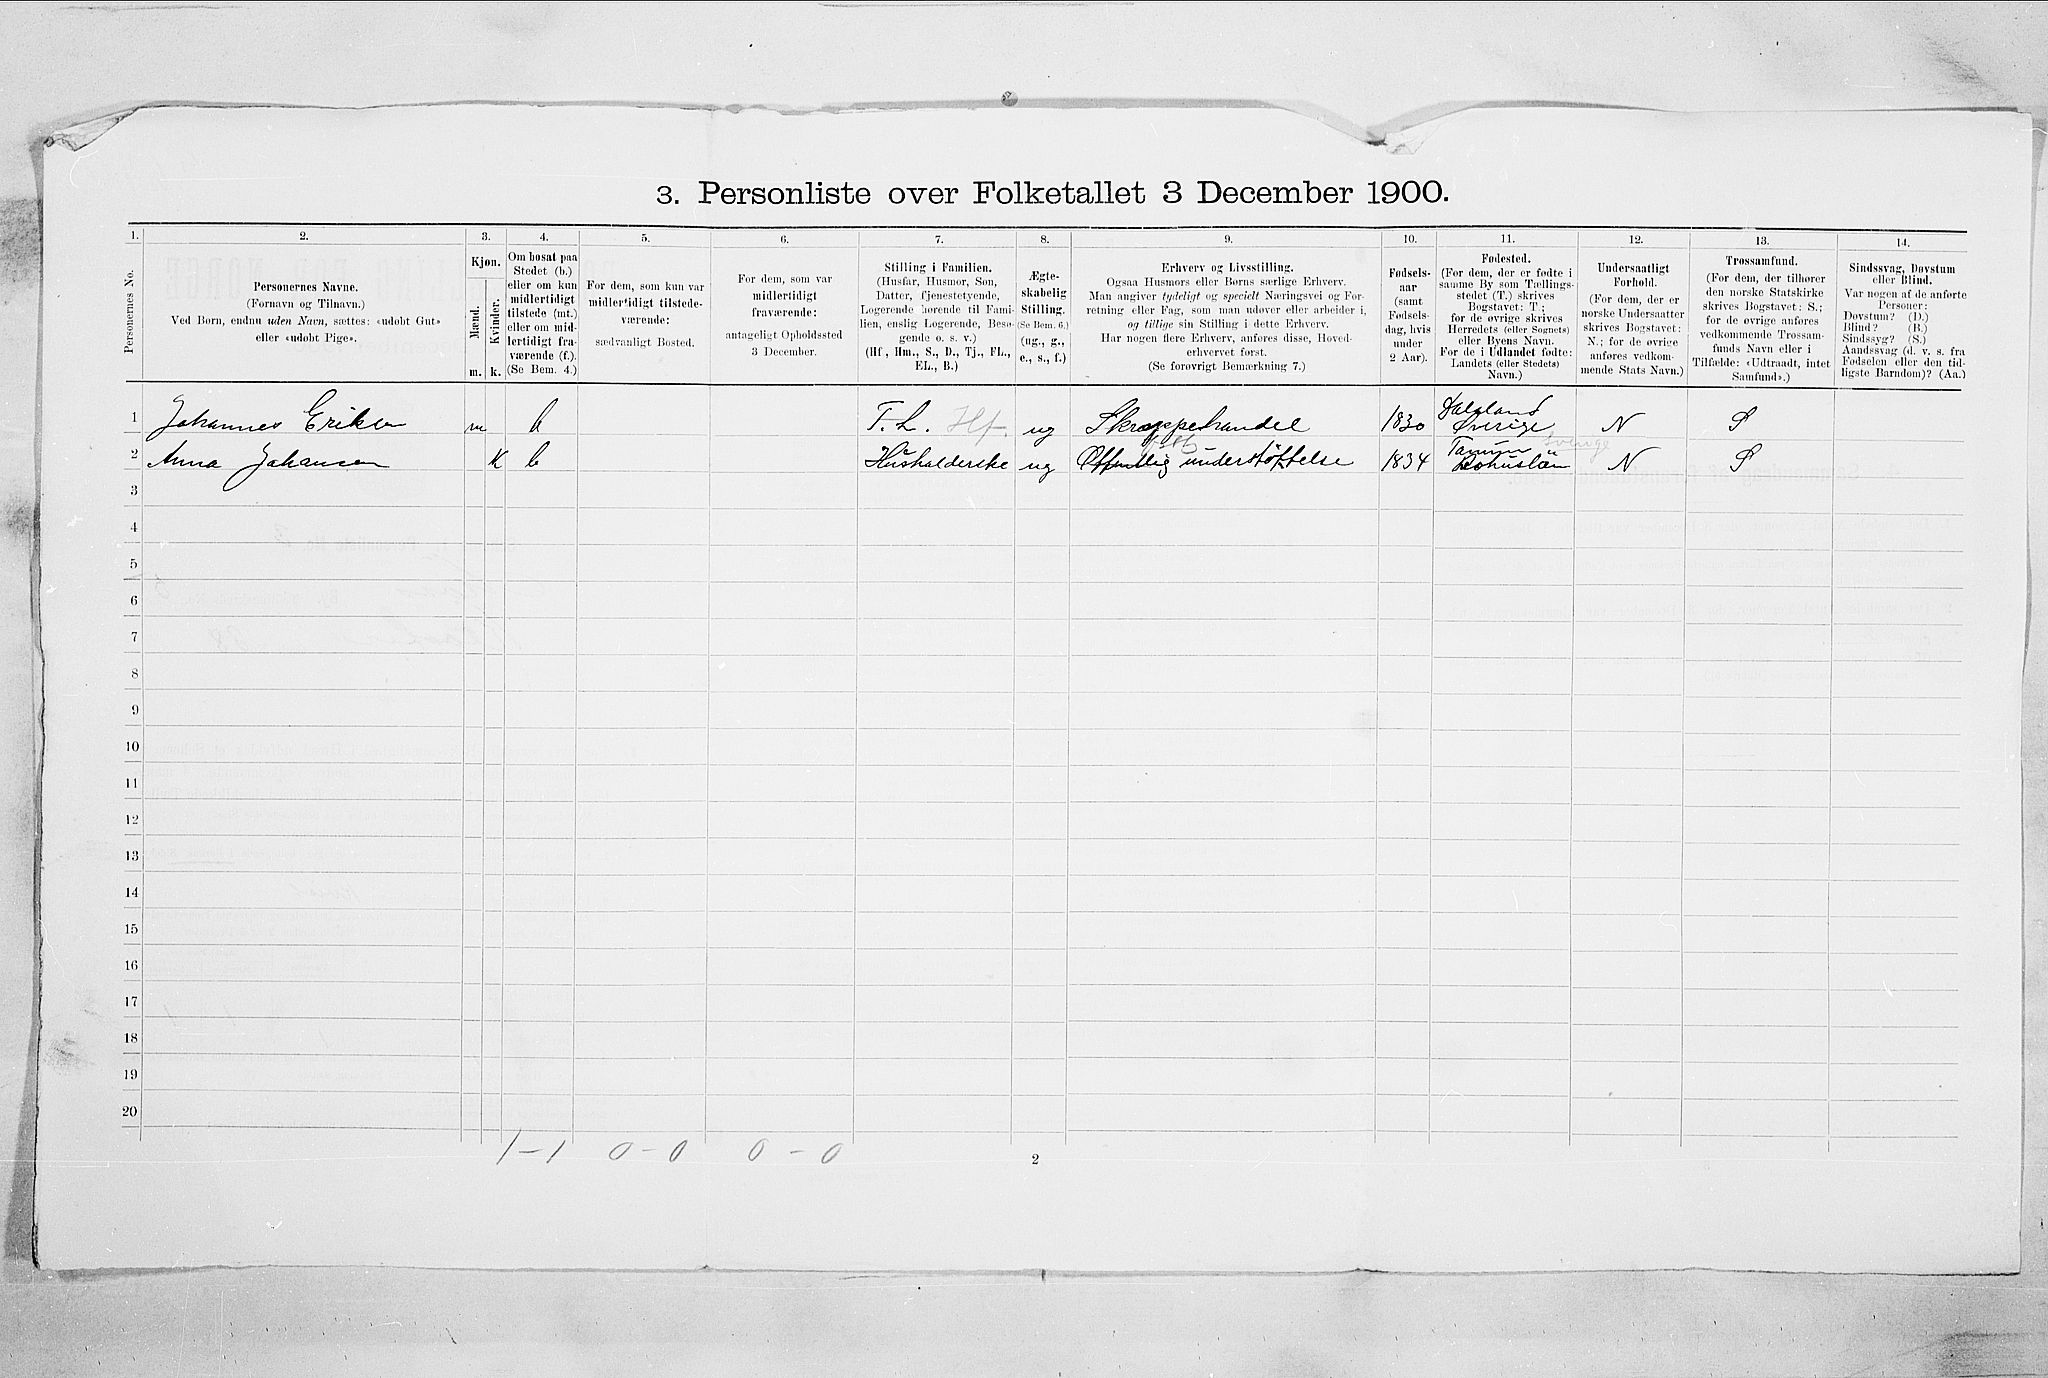 3. Personliste over Folketallet 3 December 1900.
1. 2. 3. 4. 5. 6. 7. 8. 9. 10. 11. 12. 13. 14.
Personernes No.
Personernes Navne.
(Fornavn og Tilnavn.)
Ved Børn, endnu uden Navn, sættes: «udøbt Gut»
eller «udøbt Pige».
Kjøn.
Mænd.
Kvinder.
m. k.
Om bosat paa
Stedet (b.)
eller om kun
midlertidigt
tilstede (mt.)
eller om mid-
lertidigt fra-
værende (f.).
(Se Bem. 4.)
For dem, som kun var
midlertidigt tilstede-
værende:
sædvanligt Bosted.
For dem, som var
midlertidigt
fraværende:
antageligt Opholdssted
3 December.
Stilling i Familien.
(Husfar, Husmor, Søn,
Datter, tjenestetyende,
Logerende hørende til Fami-
lien, enslig Logerende, Besø-
gende o. s. v.)
(Hf., Hm., S., D., Tj., FL.,
EL., B.)
Ægte-
skabelig
Stilling.
(Se Bem. 6.)
(ug., g.,
e., s., f.)
Erhverv og Livsstilling.
Ogsaa Husmors eller Børns særlige Erhverv.
Man angiver tydeligt og specielt Næringsvei og For-
retning eller Fag, som man udøver eller arbeider i,
og tillige sin Stilling i dette Erhverv.
Har nogen flere Erhverv, anføres disse, Hoved-
erhvervet først.
(Se forøvrigt Bemærkning 7.)
Fødsels-
aar
(samt
Fødsels-
dag, hvis
under
2 Aar).
Fødested.
(For dem, der er fødte i
samme By som Tællings-
stedet (T.) skrives
Bogstavet: T.;
for de øvrige skrives
Herredets (eller Sognets)
eller Byens Navn.
For de i Udlandet fødte:
Landets (eller Stedets)
Navn.)
Undersaatligt
Forhold.
(For dem, der er
norske Undersaatter
skrives Bogstavet:
N.; for de øvrige
anføres vedkom-
mende Stats Navn.)
Trossamfund.
(For dem, der tilhører
den norske Statskirke
skrives Bogstavet: S.;
for de øvrige anføres
vedkommende Trossam-
funds Navn eller i
Tilfælde: «Udtraadt, intet
Samfund».)
Sindssvag, Døvstum
eller Blind.
Var nogen af de anførte
Personer:
Døvstum? (D.)
Blind? (B.)
Sindssyg? (S.)
Aandssvag (d. v. s. fra
Fødselen eller den tid-
ligste Barndom)? (Aa.)
Dalsland
1 Johannes Eriksen m b T. L. Hf. ug Skrappehandel 1830 Sverige N S
Tanum Sverige
2 Anna Johansen K b Husholderske ug Offentlig understøttelse 1834 Bohuslän N S
3
4
5
6
7
8
9
10
11
12
13
14
15
16
17
18
19
20
1-1 0-0 0-0
2